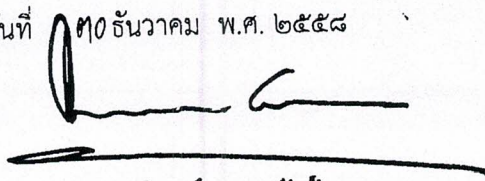 นที่ ๓๐ ธันวาคม พ.ศ. ๒๕๕๘